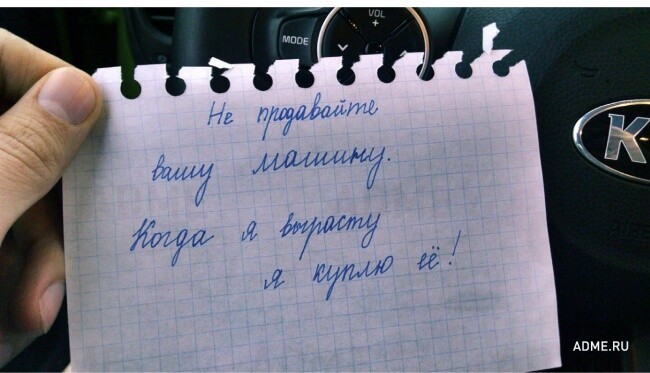 VOL
+
MODE
Не продавайте
вашу машину.
Когда я вырасту
я куплю её!
ADME.RU